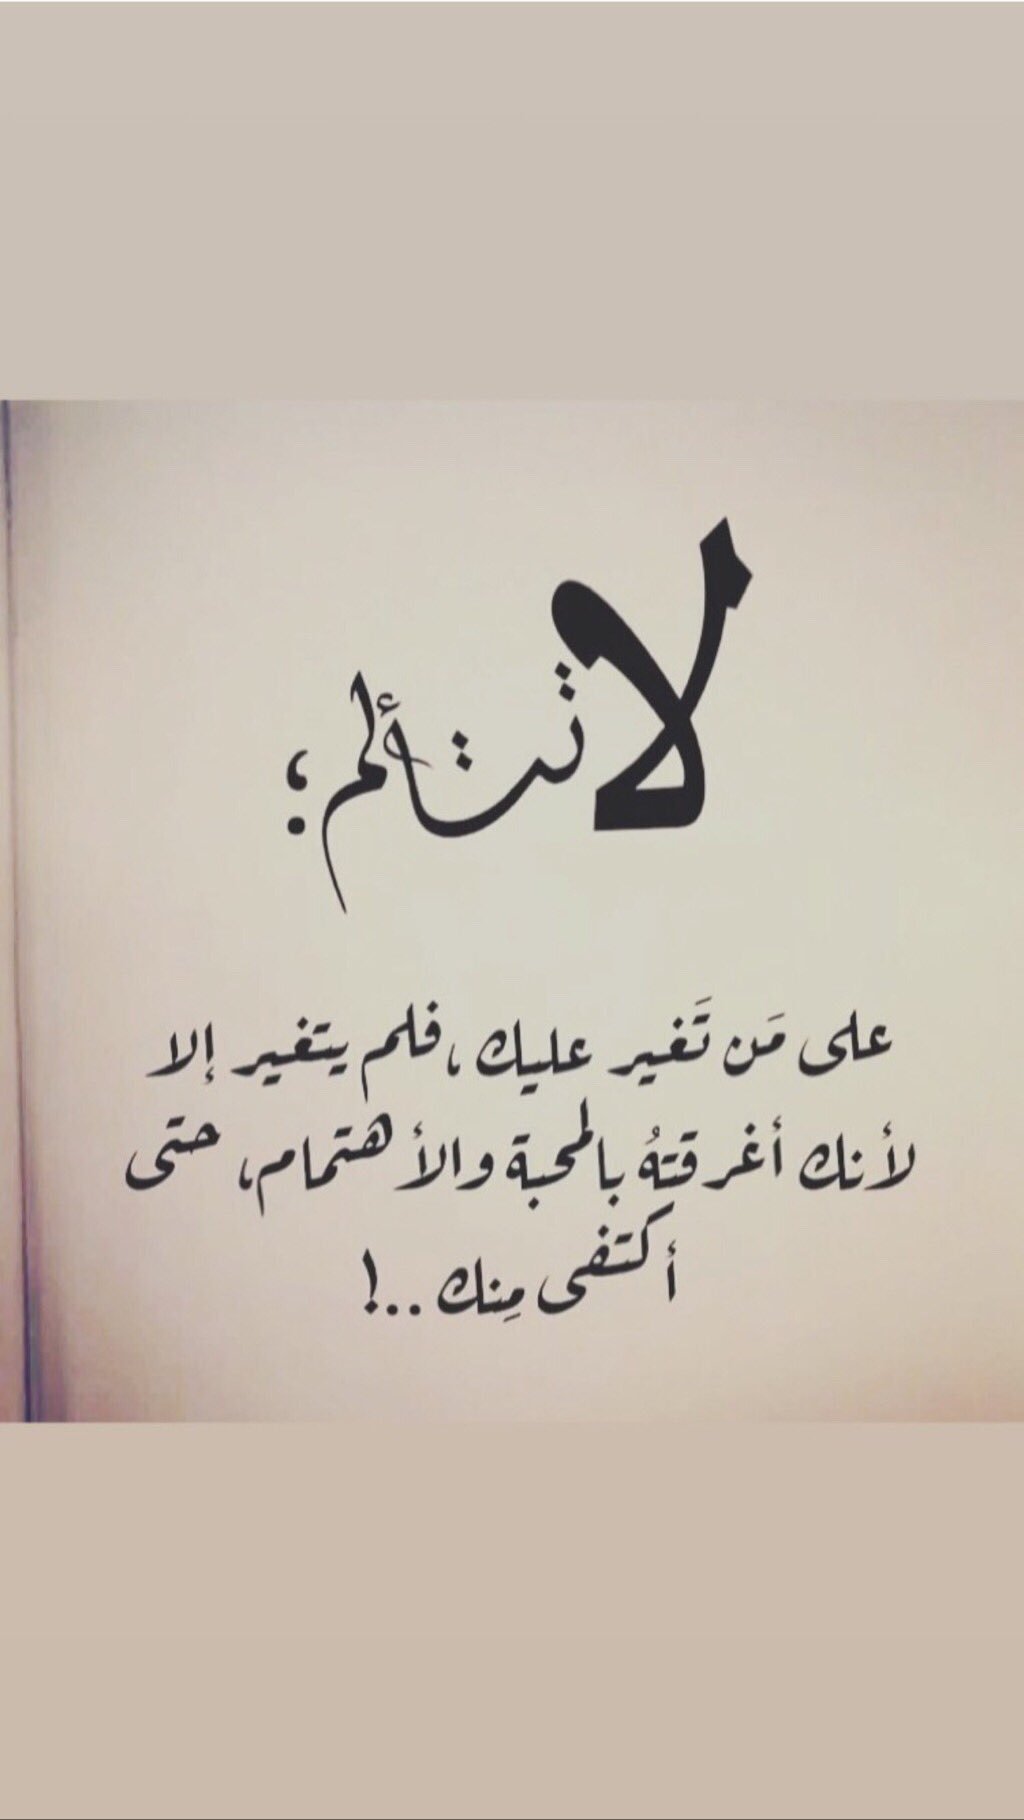 لا تتألم؛
على مَن تَغير عليك، فلم يتغير إلا
لأنك أغرقتهُ بالمحبة والأهتمام، حتى
أكتفى مِنك ..!